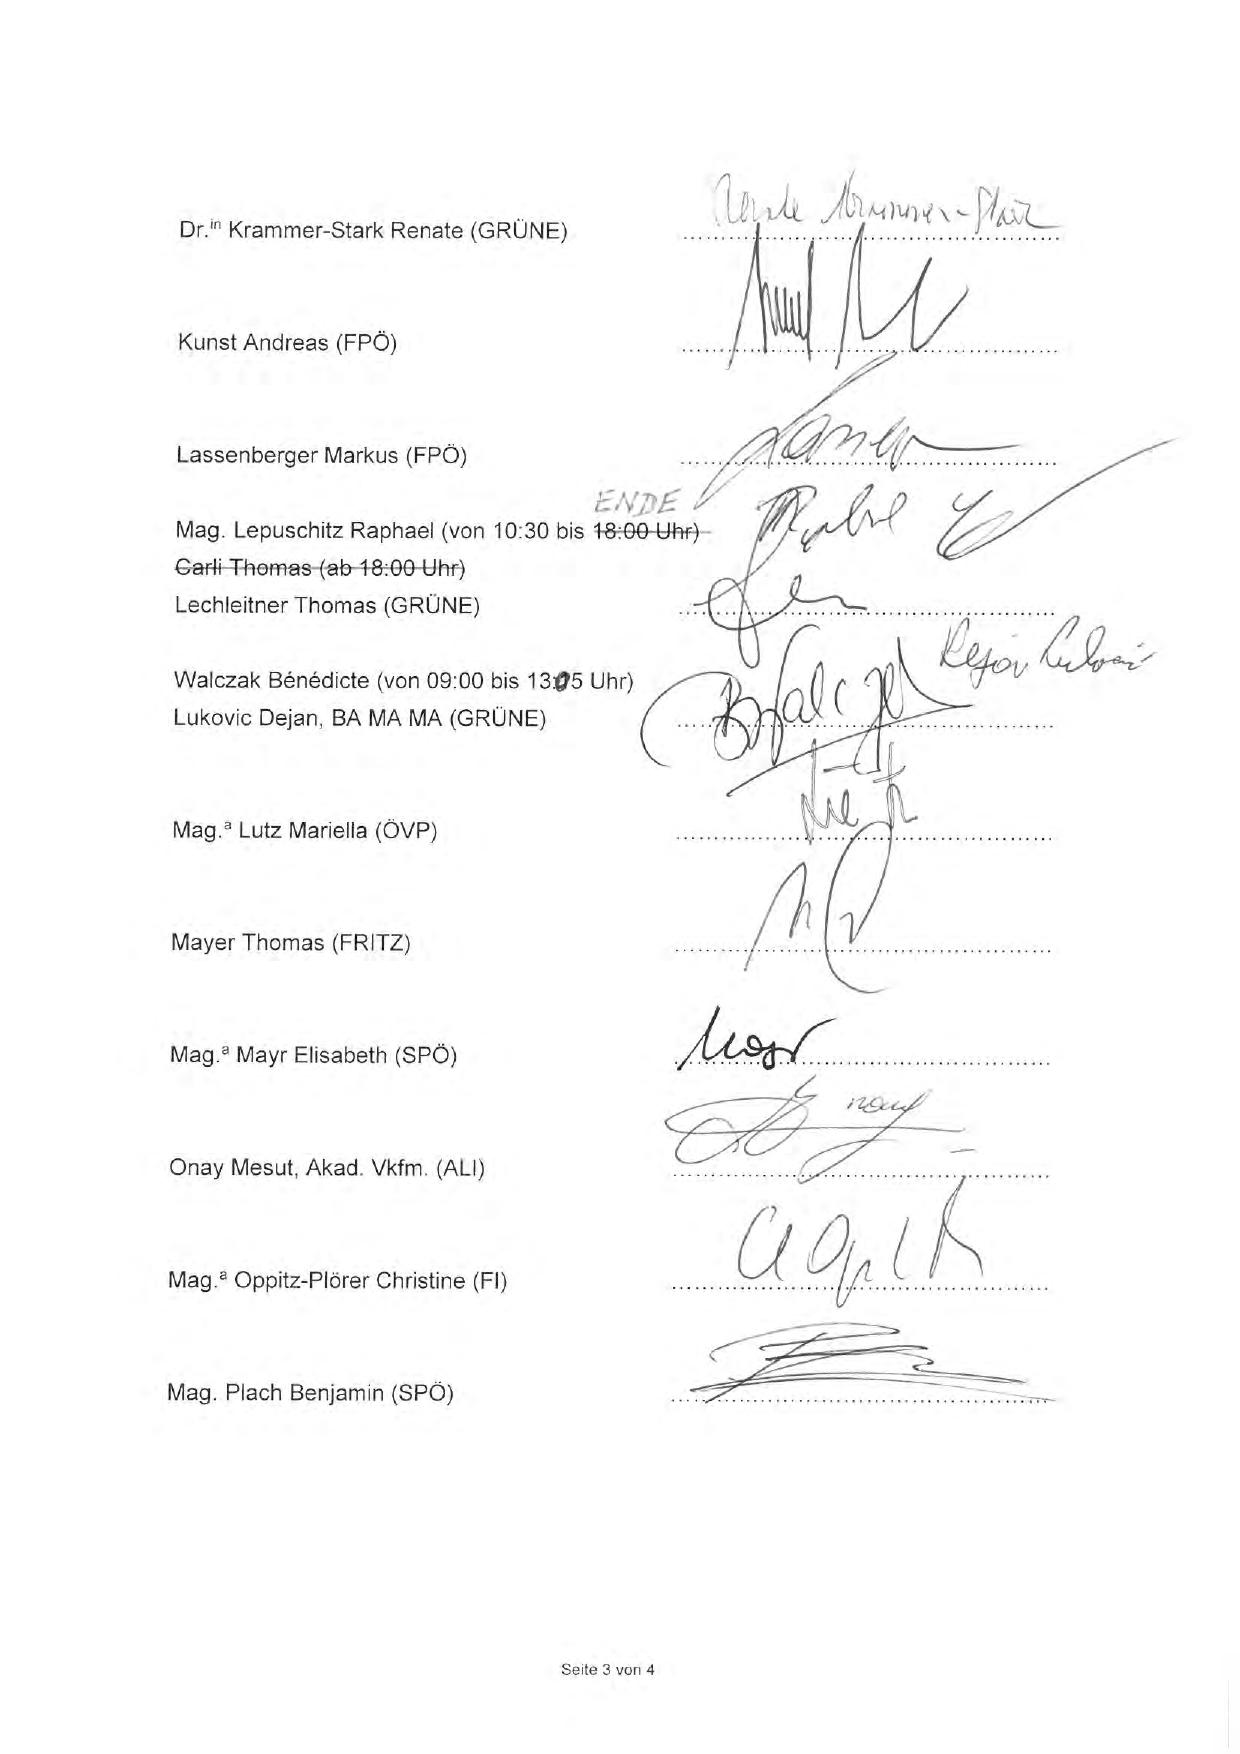 Renate Krammer-Stark
Dr.in Krammer-Stark Renate (GRÜNE)
Kunst Andreas (FPÖ)
Lassenberger Markus (FPÖ)
ENDE
Mag. Lepuschitz Raphael (von 10:30 bis 18:00 Uhr)
Carli Thomas (ab 18:00 Uhr)
Lechleitner Thomas (GRÜNE)
Dejan Lukovic
Walczak Bénédicte (von 09:00 bis 13:05 Uhr)
B Walczak
Lukovic Dejan, BA MA MA (GRÜNE)
Mag.a Lutz Mariella (ÖVP)
Mayer Thomas (FRITZ)
Mag.a Mayr Elisabeth (SPÖ)
Mayr
Onay Mesut, Akad. Vkfm. (ALI)
Mag.a Oppitz-Plörer Christine (FI)
Mag. Plach Benjamin (SPÖ)
Seite 3 von 4